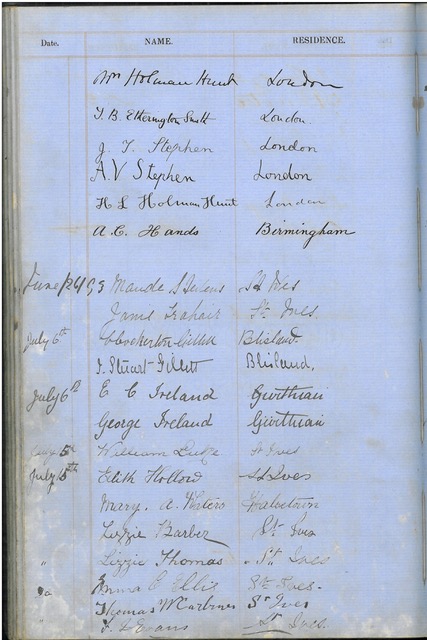 Date. NAME. RESIDENCE.
Wm Holman Hunt London
T. B. Etherington Smith London.
J. T. Stephen London
A. V Stephen London
H L Holman Hunt London
A. C. Hands Birmingham
June 24 93 Maude Stevens St Ives
Jane Trahair St. Ives.
July 6th Blisland.
J. Stuart Gillett Blisland.
July 6th E C Ireland Gwithian
George Ireland Gwithian
William Luke St Ives
July 15th Edith Hollow St Ives
Mary. A. Waters Halsetown
Lizzie Barber St. Ives
" Lizzie Thomas St. Ives
Do Emma C Ellis St. Ives.
Thomas St Ives
" Evans St. Ives.